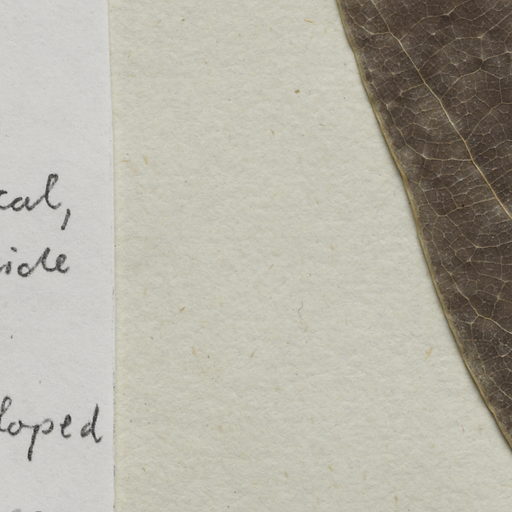 cal,
side
loped